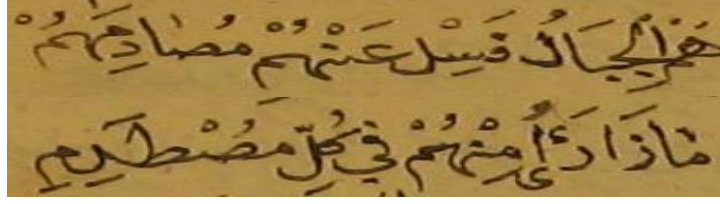 هُمُ الْجِبَالُ فَسَلْ عَنْهُمْ مُصَادِمَهُمْ
مَاذَا رَأَى مِنْهُمْ فِي كُلِّ مُصْطَدَمِ